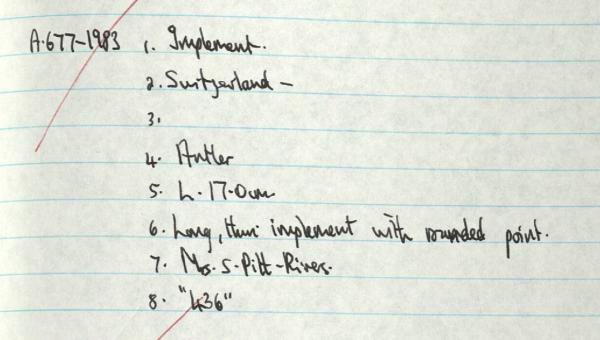 A.677-1983 1. Implement.
2. Switzerland -
3.
4. Antler
5. L. 17.0cm
6. Long, thin implement with rounded point.
7. Mrs. S. Pitt-Rivers.
8. "436"